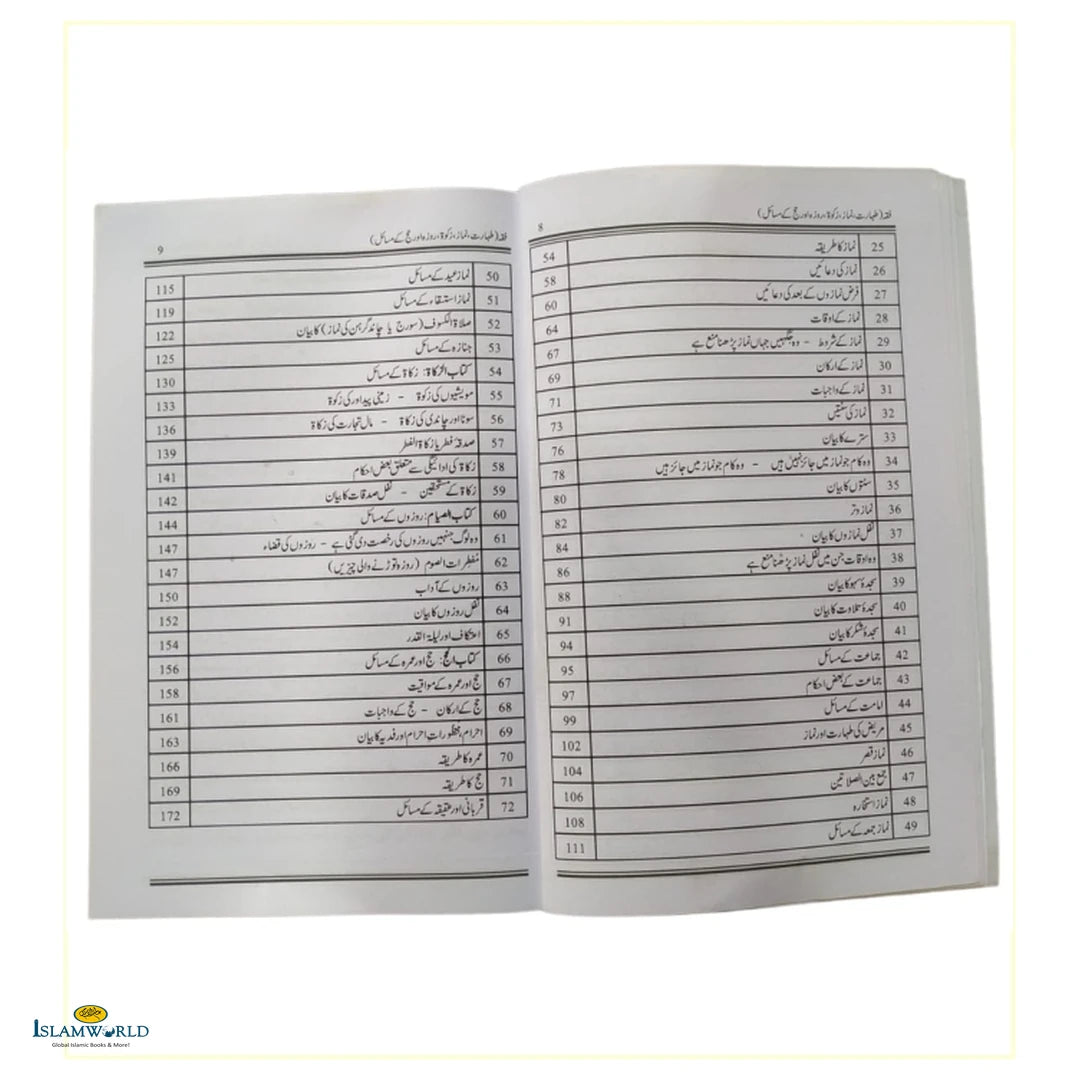 فقہ (طہارت، نماز، زکوٰۃ، روزہ اور حج کے مسائل) 8
25 نماز کا طریقہ 54
26 نماز کی دعائیں 58
27 فرض نمازوں کے بعد کی دعائیں 60
28 نماز کے اوقات 64
29 نماز کے شروط - وہ جگہیں جہاں نماز پڑھنا منع ہے 67
30 نماز کے ارکان 69
31 نماز کے واجبات 71
32 نماز کی سنتیں 73
33 سترے کا بیان 76
34 وہ کام جو نماز میں جائز نہیں ہیں - وہ کام جو نماز میں جائز ہیں 78
35 سنتوں کا بیان 80
36 نماز وتر 82
37 نفل نمازوں کا بیان 84
38 وہ اوقات جن میں نفل نماز پڑھنا منع ہے 86
39 سجدۂ سہو کا بیان 88
40 سجدۂ تلاوت کا بیان 91
41 سجدۂ شکر کا بیان 94
42 جماعت کے مسائل 95
43 جماعت کے بعض احکام 97
44 امامت کے مسائل 99
45 مریض کی طہارت اور نماز 102
46 نماز قصر 104
47 جمع بین الصلاتین 106
48 نماز استخارہ 108
49 نماز جمعہ کے مسائل 111
فقہ (طہارت، نماز، زکوٰۃ، روزہ اور حج کے مسائل) 9
50 نماز عید کے مسائل 115
51 نماز استسقاء کے مسائل 119
52 صلاۃ الکسوف (سورج یا چاند گرہن کی نماز) کا بیان 122
53 جنازہ کے مسائل 125
54 کتاب الزکاۃ: زکاۃ کے مسائل 130
55 مویشیوں کی زکوۃ - زمینی پیداور کی زکوۃ 133
56 سونا اور چاندی کی زکاۃ - مال تجارت کی زکاۃ 136
57 صدقۂ فطر یا زکاۃ الفطر 139
58 زکاۃ کی ادائیگی سے متعلق بعض احکام 141
59 زکاۃ کے مستحقین - نفل صدقات کا بیان 142
60 کتاب الصیام: روزوں کے مسائل 144
61 وہ لوگ جنہیں روزوں کی رخصت دی گئی ہے - روزوں کی قضاء 147
62 مُفطرات الصوم (روزہ توڑنے والی چیزیں) 147
63 روزوں کے آداب 150
64 نفل روزوں کا بیان 152
65 اعتکاف اور لیلۃ القدر 154
66 کتاب الحج: حج اور عمرہ کے مسائل 156
67 حج اور عمرہ کے مواقیت 158
68 حج کے ارکان - حج کے واجبات 161
69 احرام، محظورات احرام اور فدیہ کا بیان 163
70 عمرہ کا طریقہ 166
71 حج کا طریقہ 169
72 قربانی اور عقیقہ کے مسائل 172
ISLAMWORLD
Global Islamic Books & More!